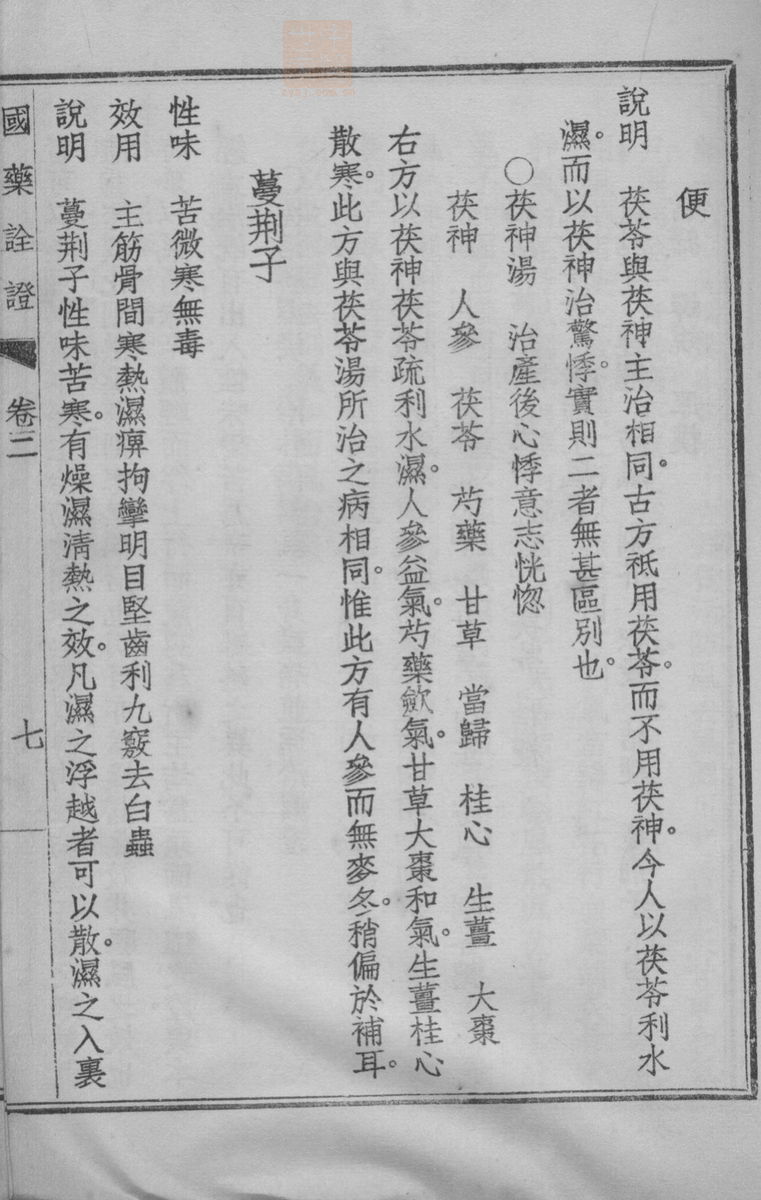 便
說明　茯苓與茯神主治相同。古方祇用茯苓。而不用茯神。今人以茯苓利水
濕。而以茯神治驚悸。實則二者無甚區別也。
〇茯神湯　治產後心悸意志恍惚
茯神　人參　茯苓　芍藥　甘草　當歸　桂心　生薑　大棗
右方以茯神茯苓疏利水濕。人參益氣。芍藥歛氣。甘草大棗和氣。生薑桂心
散寒。此方與茯苓湯所治之病相同。惟此方有人參而無麥冬。稍偏於補耳。
蔓荆子
性味　苦微寒無毒
效用　主筋骨間寒熱濕痹拘攣明目堅齒利九竅去白蟲
說明　蔓荆子性味苦寒。有燥濕清熱之效。凡濕之浮越者可以散。濕之入裏
國藥詮證　卷三　七